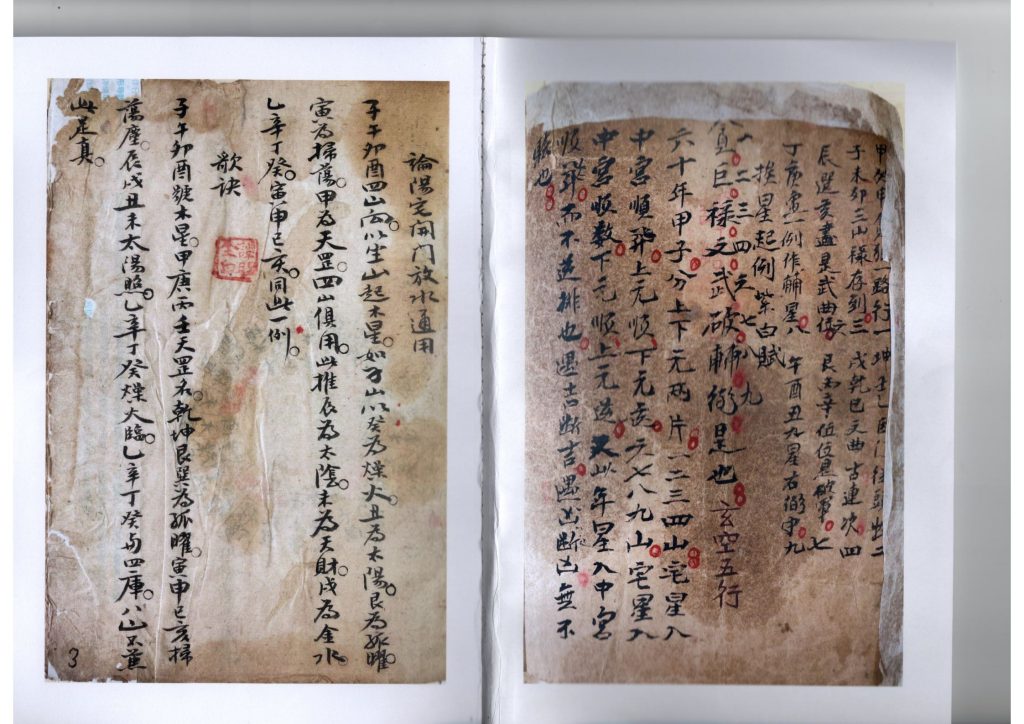 甲癸申一路行一 坤壬乙巨门從頭出二
子未卯三山祿存到三 戌乾巳文曲古連次四
辰巽亥盡是武曲位六 艮丙辛位位是破軍七
丁庚寅一例作輔星八 午酉丑九星右弼守九
挨星起例 紫白賦
一二三四六七八九
貪巨祿文武破輔弼是也 玄空五行
六十年甲子分上下元兩片一二三四山宅星入
中宮順飛上元順下元逆六七八九山宅星入
中宮順数下元順上元逆又以年星入中宮
順飛而不逆排也遇吉断吉遇凶断凶無不
驗也
論陽宅開門放水通用
子午卯酉四山向以坐山起木星。如子山以癸為燥火。丑為太陽。艮為孤曜。
寅為掃蕩。甲為天罡。四山俱用此推。辰為太陰。未為天財。戌為金水。
乙辛丁癸。寅申巳亥。同此一例。
歌訣
子午卯酉號木星。甲庚丙壬天罡名。乾坤艮巽為孤曜。寅申巳亥掃
蕩塵。辰戌丑未太陽照。乙辛丁癸燥火臨。乙辛丁癸与四庫。八山不葉
此是真。
3